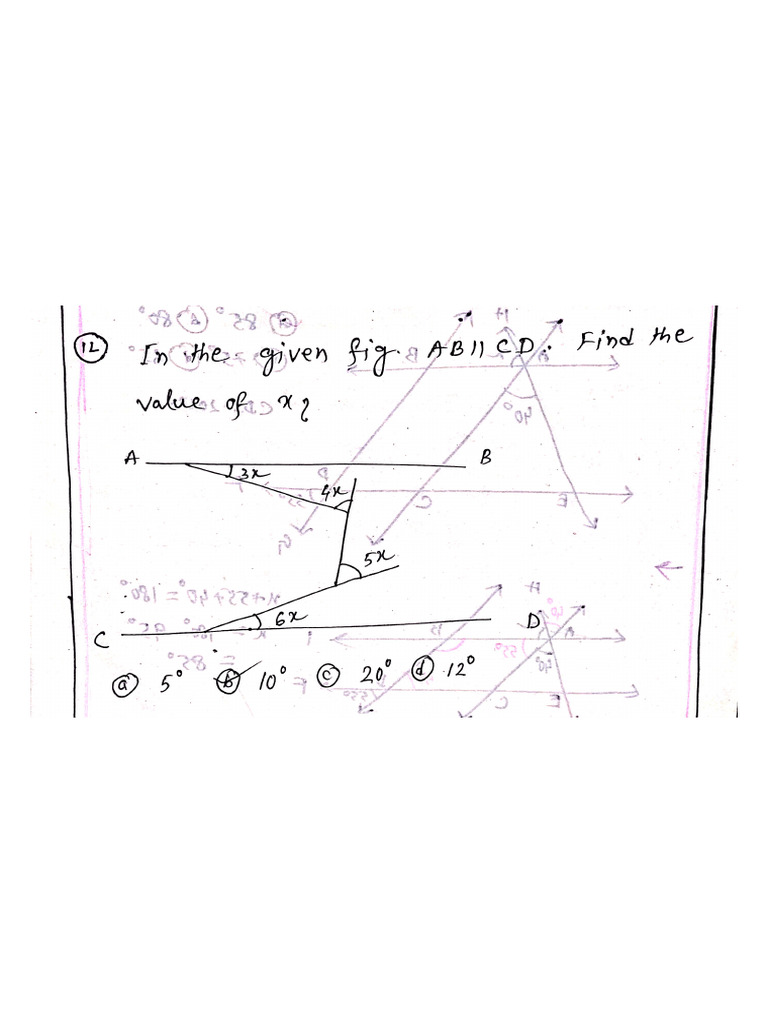 12 In the given fig. AB || CD. Find the
value of x?
A B
3x
4x
5x
6x
C D
(a) 5° (b) 10° (c) 20° (d) 12°